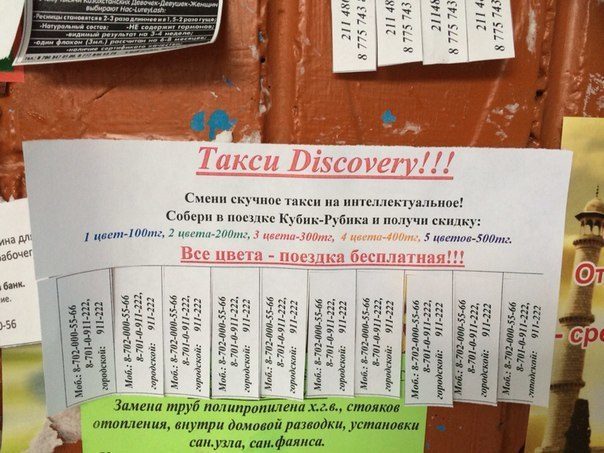 Казахстанских Девочек-Девушек-Женщин
выбирают Нас-LureyLash:
Ресницы становятся 2-3 раза длиннее и в 1,5-2 раза гуще;
-Натуральный состав: -НЕ содержит гормонов;
-видимый результат на 3-4 неделе;
-один флакон (3мл.) рассчитан на 6-8 месяцев;
211 486
8 775 743
211 48
8 775 743
211 48
8 775 743
211
8 775 743
Такси Discovery!!!
Смени скучное такси на интеллектуальное!
Собери в поездке Кубик-Рубика и получи скидку:
1 цвет-100тг, 2 цвета-200тг, 3 цвета-300тг, 4 цвета-400тг, 5 цветов-500тг.
Все цвета - поездка бесплатная!!!
Моб.: 8-702-000-55-66
8-701-0-911-222,
городской: 911-222
Моб.: 8-702-000-55-66
8-701-0-911-222,
городской: 911-222
Моб.: 8-702-000-55-66
8-701-0-911-222,
городской: 911-222
Моб.: 8-702-000-55-66
8-701-0-911-222,
городской: 911-222
Моб.: 8-702-000-55-66
8-701-0-911-222,
городской: 911-222
Моб.: 8-702-000-55-66
8-701-0-911-222,
городской: 911-222
Моб.: 8-702-000-55-66
8-701-0-911-222,
городской: 911-222
Моб.: 8-702-000-55-66
8-701-0-911-222,
городской: 911-222
Моб.: 8-702-000-55-66
8-701-0-911-222,
городской: 911-222
Моб.: 8-702-000-55-66
8-701-0-911-222,
городской: 911-222
ина для
рабочег
банк.
ие.
0-56
От
- сре
Замена труб полипропилена х.г.в., стояков
отопления, внутри домовой разводки, установки
сан.узла, сан.фаянса.